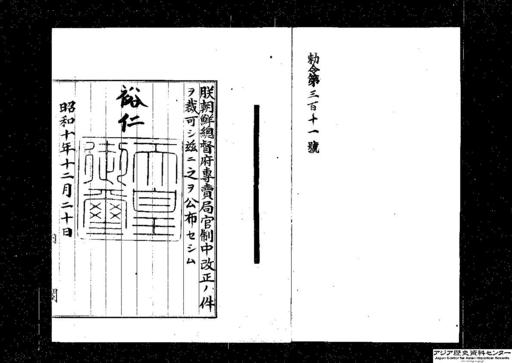 勅令第三百十一號
朕朝鮮總督府專賣局官制中改正ノ件
ヲ裁可シ茲ニ之ヲ公布セシム
裕仁
天皇
御璽
昭和十年十二月二十日
閣
アジア歴史資料センター
Japan Center for Asian Historical Records